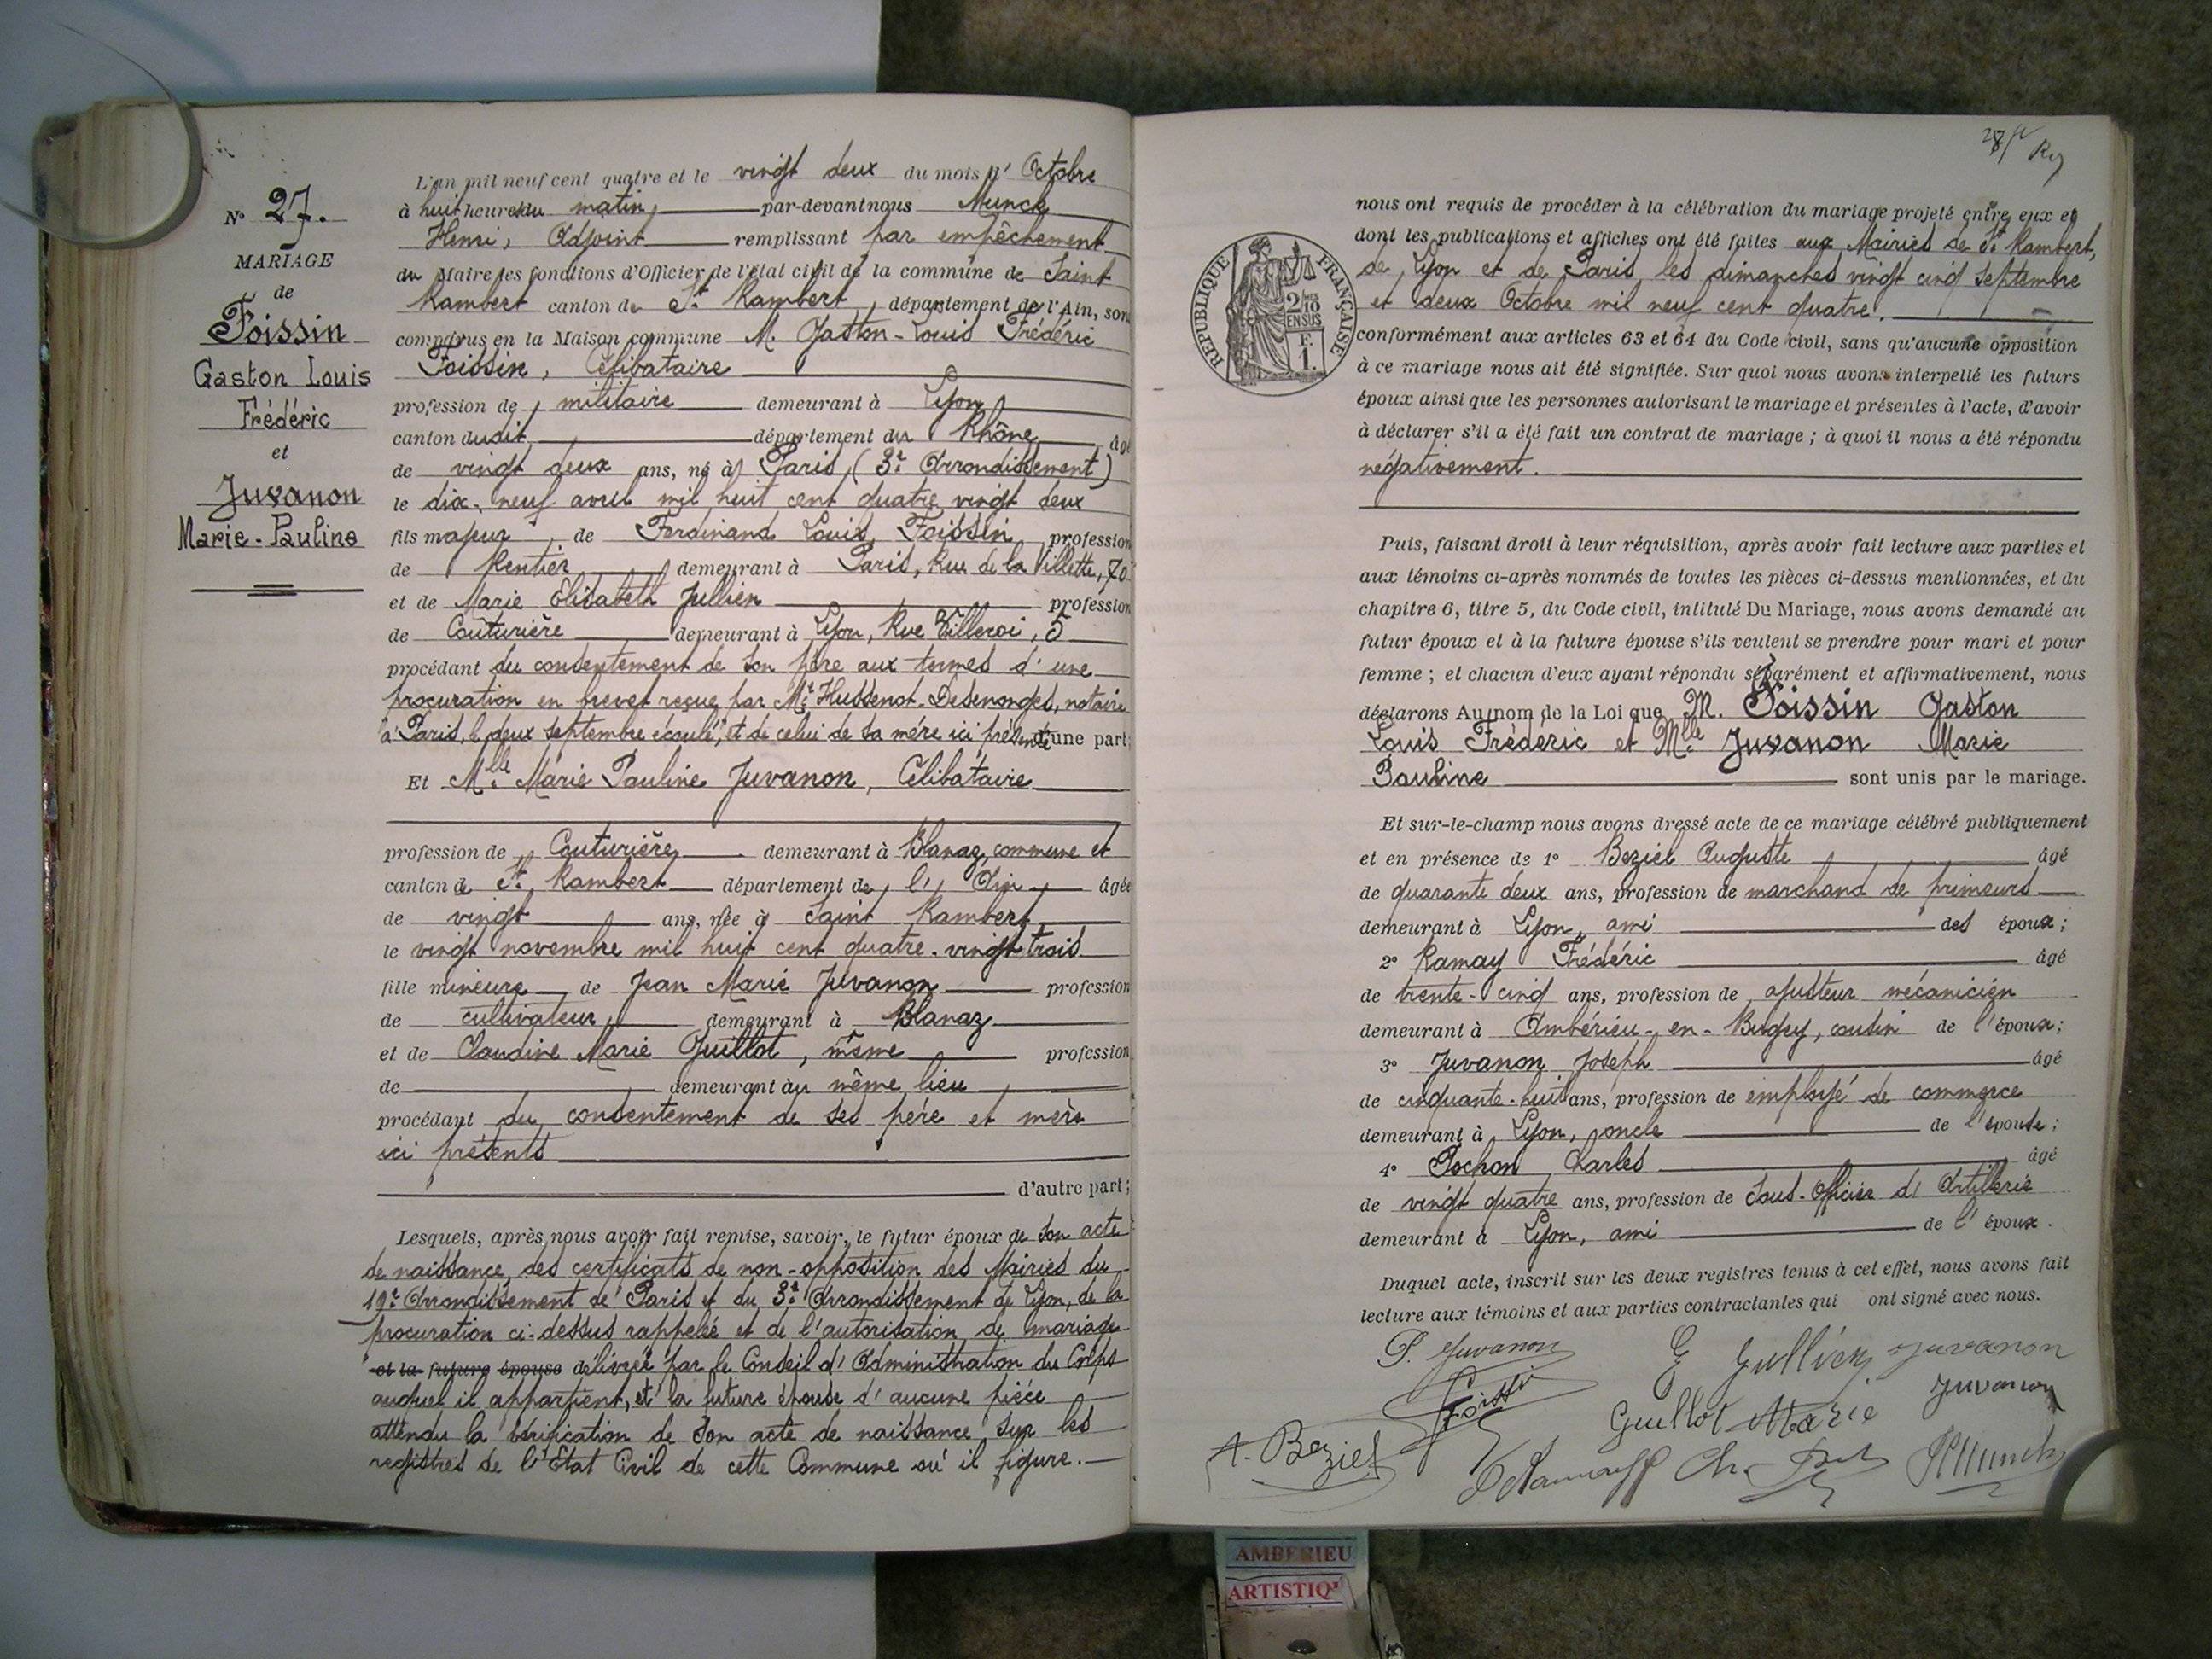 N° 27.
MARIAGE
de
Foissin
Gaston Louis
Frédéric
et
Juvanon
Marie-Pauline
L'an mil neuf cent quatre et le vingt deux du mois d' Octobre
à huit heures du matin, par-devant nous Munck
Henri, Adjoint remplissant par empêchement
du Maire les fonctions d'Officier de l'état civil de la commune de Saint
Rambert canton de St Rambert, département de l'Ain, sont
comparus en la Maison commune M. Gaston-Louis Frédéric
Foissin, Célibataire
profession de militaire demeurant à Lyon
canton dudit, département du Rhône âgé
de vingt deux ans, né à Paris, (3e Arrondissement)
le dix-neuf avril mil huit cent quatre vingt deux
fils majeur de Ferdinand Louis Foissin, profession
de Rentier demeurant à Paris, Rue de la Villette, 70
et de Marie Elisabeth Jullien profession
de Couturière demeurant à Lyon, Rue Villeroi, 5
procédant du consentement de son père aux termes d'une
procuration en brevet reçue par Me Hussenot-Desenonges, notaire
à Paris, le deux septembre écoulé, et de celui de sa mère ici présente d'une part;
Et Mlle Marie Pauline Juvanon, Célibataire
profession de Couturière demeurant à Blanaz, commune et
canton de St Rambert département de l' Ain âgée
de vingt ans, née à Saint Rambert
le vingt novembre mil huit cent quatre-vingt trois
fille mineure de Jean Marie Juvanon profession
de cultivateur demeurant à Blanaz
et de Claudine Marie Guillot, même profession
de demeurant au même lieu
procédant du consentement de ses père et mère
ici présents
d'autre part;
Lesquels, après nous avoir fait remise, savoir, le futur époux de son acte
de naissance, des certificats de non-opposition des Mairies du
19e Arrondissement de Paris et du 3e Arrondissement de Lyon, de la
procuration ci-dessus rappelée et de l'autorisation de mariage
et la future épouse délivrée par le Conseil d'Administration du Corps
auquel il appartient, et la future épouse d'aucune pièce
attendu la vérification de son acte de naissance sur les
registres de l'Etat Civil de cette Commune où il figure.
REPUBLIQUE FRANÇAISE
2/10
EN SUS
F.
1.
nous ont requis de procéder à la célébration du mariage projeté entre eux et
dont les publications et affiches ont été faites aux Mairies de St Rambert,
de Lyon et de Paris, les dimanches vingt cinq septembre
et deux Octobre mil neuf cent quatre.
conformément aux articles 63 et 64 du Code civil, sans qu'aucune opposition
à ce mariage nous ait été signifiée. Sur quoi nous avons interpellé les futurs
époux ainsi que les personnes autorisant le mariage et présentes à l'acte, d'avoir
à déclarer s'il a été fait un contrat de mariage ; à quoi il nous a été répondu
négativement.
Puis, faisant droit à leur réquisition, après avoir fait lecture aux parties et
aux témoins ci-après nommés de toutes les pièces ci-dessus mentionnées, et du
chapitre 6, titre 5, du Code civil, intitulé Du Mariage, nous avons demandé au
futur époux et à la future épouse s'ils veulent se prendre pour mari et pour
femme ; et chacun d'eux ayant répondu séparément et affirmativement, nous
déclarons Au nom de la Loi que M. Foissin Gaston
Louis Fréderic et Mlle Juvanon Marie
Pauline sont unis par le mariage.
Et sur-le-champ nous avons dressé acte de ce mariage célébré publiquement
et en présence de 1° Beziel Auguste âgé
de quarante deux ans, profession de marchand de primeurs
demeurant à Lyon, ami des époux;
2° Ramay Frédéric âgé
de trente-cinq ans, profession de ajusteur mécanicien
demeurant à Ambérieu-en-Bugey, cousin de l'époux;
3° Juvanon Joseph âgé
de cinquante-huit ans, profession de employé de commerce
demeurant à Lyon, oncle de l'épouse;
4° Pochon Charles âgé
de vingt quatre ans, profession de Sous-Officier d'Artillerie
demeurant à Lyon, ami de l'époux.
Duquel acte, inscrit sur les deux registres tenus à cet effet, nous avons fait
lecture aux témoins et aux parties contractantes qui ont signé avec nous.
P. Juvanon E Jullien Juvanon
Foissin Guillot Marie Juvanon
A. Beziel Ch. HMunck
AMBERIEU
ARTISTIQ'